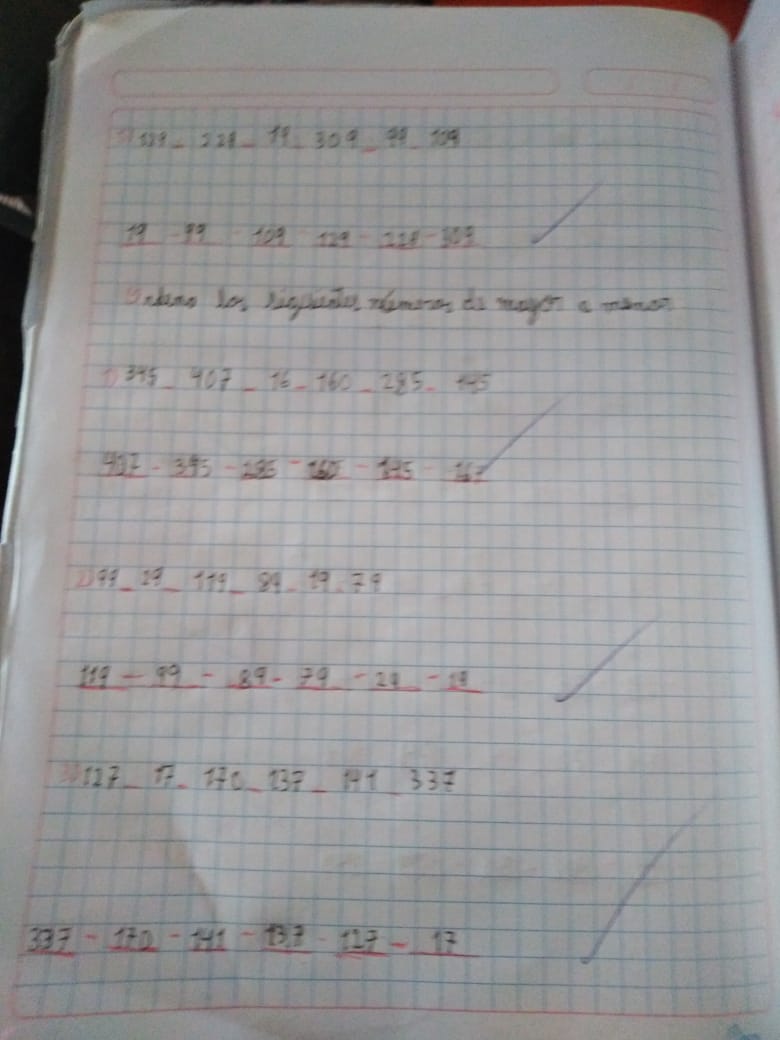 129 - 229 - 19 - 309 - 99 - 109
19 - 99 - 109 - 129 - 229 - 309
Ordeno los siguientes números de mayor a menor
1) 395 - 407 - 16 - 160 - 285 - 145
407 - 395 - 285 - 160 - 145 -
2) 99 - 29 - 119 - 89 - 19 - 79
119 - 99 - 89 - 79 - 29 - 19
3) 127 - 17 - 170 - 137 - 141 - 337
337 - 170 - 141 - 137 - 127 - 17